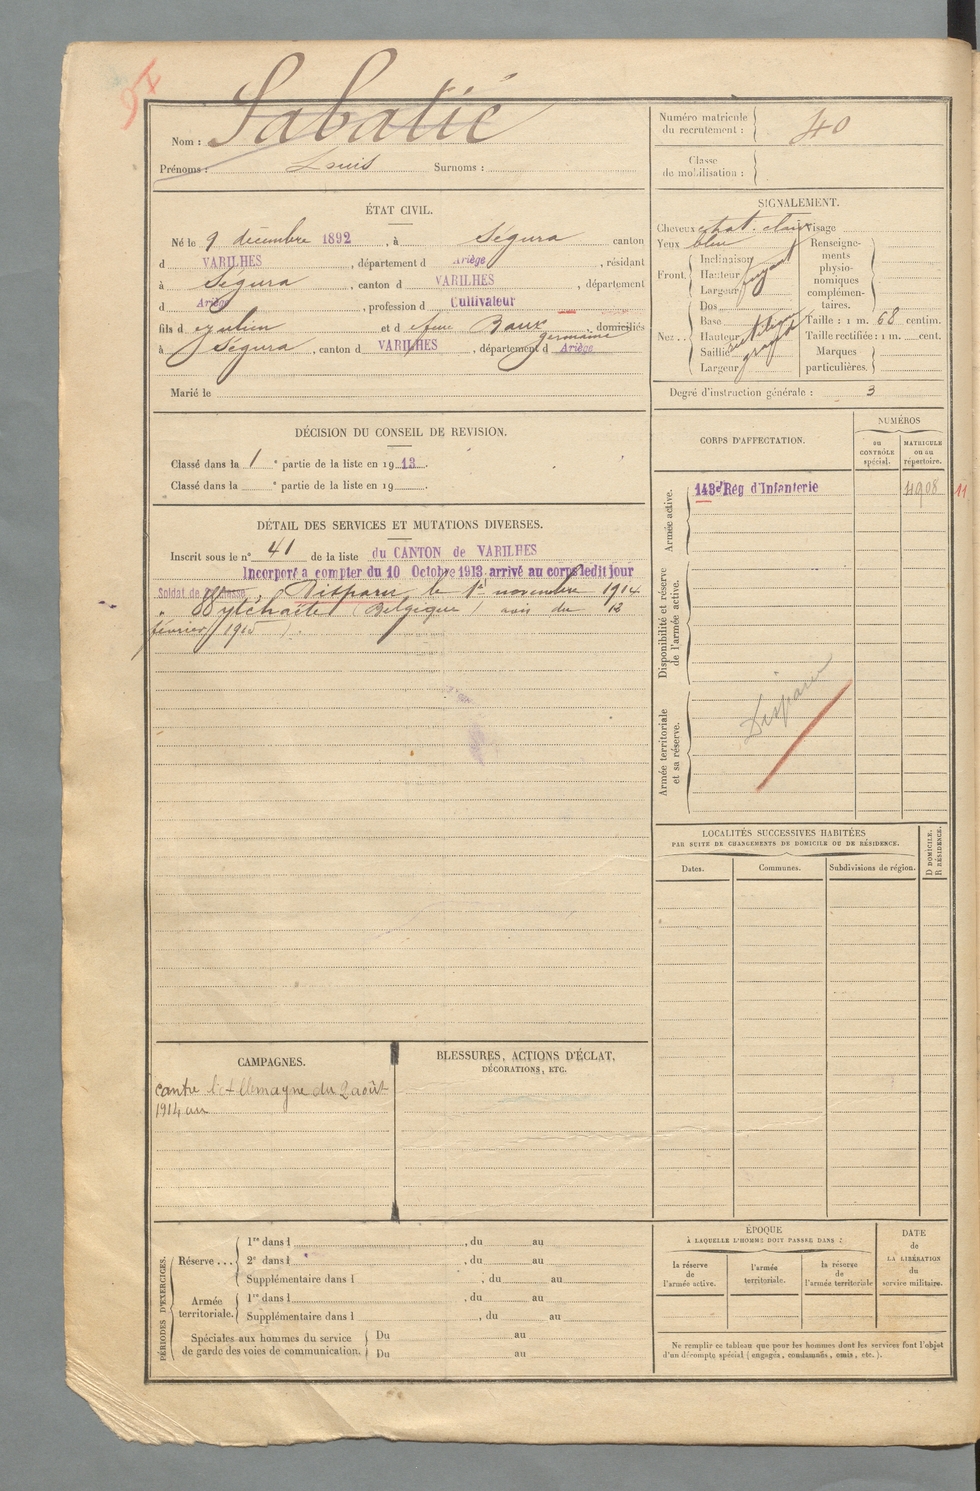 Nom : Sabatié
Prénoms : Louis Surnoms :
Numéro matricule du recrutement : 40
Classe de mobilisation :
ÉTAT CIVIL.
Né le 9 décembre 1892, à Ségura canton
d VARILHES, département d Ariège, résidant
à Ségura, canton d VARILHES, département
d Ariège, profession d Cultivateur
fils d et d Baux germaine, domiciliés
à Ségura, canton d VARILHES, département d Ariège
Marié le
SIGNALEMENT.
Cheveux chat. clair Visage
Yeux bleu
Front. Inclinaison
Hauteur fuyant
Largeur
Nez.. Dos
Base
Hauteur
Saillie grand
Largeur
Renseignements physionomiques complémentaires.
Taille : 1 m. 68 centim.
Taille rectifiée : 1 m. cent.
Marques particulières.
Degré d'instruction générale : 3
DÉCISION DU CONSEIL DE REVISION.
Classé dans la 1 e partie de la liste en 1913.
Classé dans la e partie de la liste en 19
CORPS D'AFFECTATION.
NUMÉROS
au CONTRÔLE spécial.
MATRICULE ou au répertoire.
Armée active.
143e Rég d'Infanterie 4908 11
Disponibilité et réserve de l'armée active.
Armée territoriale et sa réserve.
Disparu
DÉTAIL DES SERVICES ET MUTATIONS DIVERSES.
Inscrit sous le n° 41 de la liste du CANTON de VARILHES
Incorporé a compter du 10 Octobre 1913 arrivé au corps ledit jour
Soldat de 2e Classe. Disparu le 1er novembre 1914
à Wytchaete (Belgique) avis du 13
février 1915).
LOCALITÉS SUCCESSIVES HABITÉES
PAR SUITE DE CHANGEMENTS DE DOMICILE OU DE RÉSIDENCE.
Dates. Communes. Subdivisions de région. D DOMICILE. R RÉSIDENCE.
CAMPAGNES.
contre l'Allemagne du 2 août
1914 au
BLESSURES, ACTIONS D'ÉCLAT,
DÉCORATIONS, ETC.
PÉRIODES D'EXERCICES.
Réserve ... 1re dans l , du au
2e dans l , du au
Supplémentaire dans l , du au
Armée territoriale. 1re dans l , du au
Supplémentaire dans l , du au
Spéciales aux hommes du service de garde des voies de communication. Du au
Du au
ÉPOQUE
À LAQUELLE L'HOMME DOIT PASSER DANS :
la réserve de l'armée active.
l'armée territoriale.
la réserve de l'armée territoriale
DATE de LA LIBÉRATION du service militaire.
Ne remplir ce tableau que pour les hommes dont les services font l'objet
d'un décompte spécial (engagés, condamnés, omis, etc.).